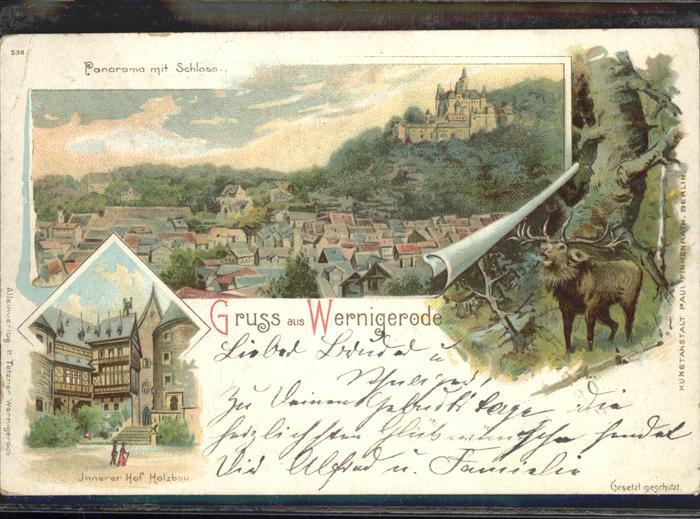 538
Panorama mit Schloss.
Gruss aus Wernigerode
Lieber Bruder u
Zu Deinem Geburtstage die
herzlichsten Glückwünsche sendet
Dir Alfred u. Familie
Innerer Hof Holzbau
Gesetzl. geschützt.
Alleinverlag H. Tetzner Wernigerode
KUNSTANSTALT PAUL FINKENRATH, BERLIN